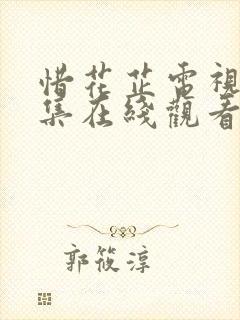 惜花芷電視
集在綫觀看
郭筱淳